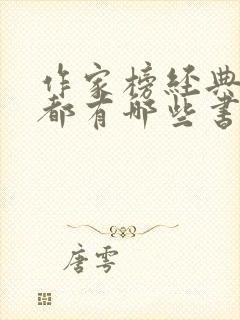 作家榜经典
都有哪些书
唐雩